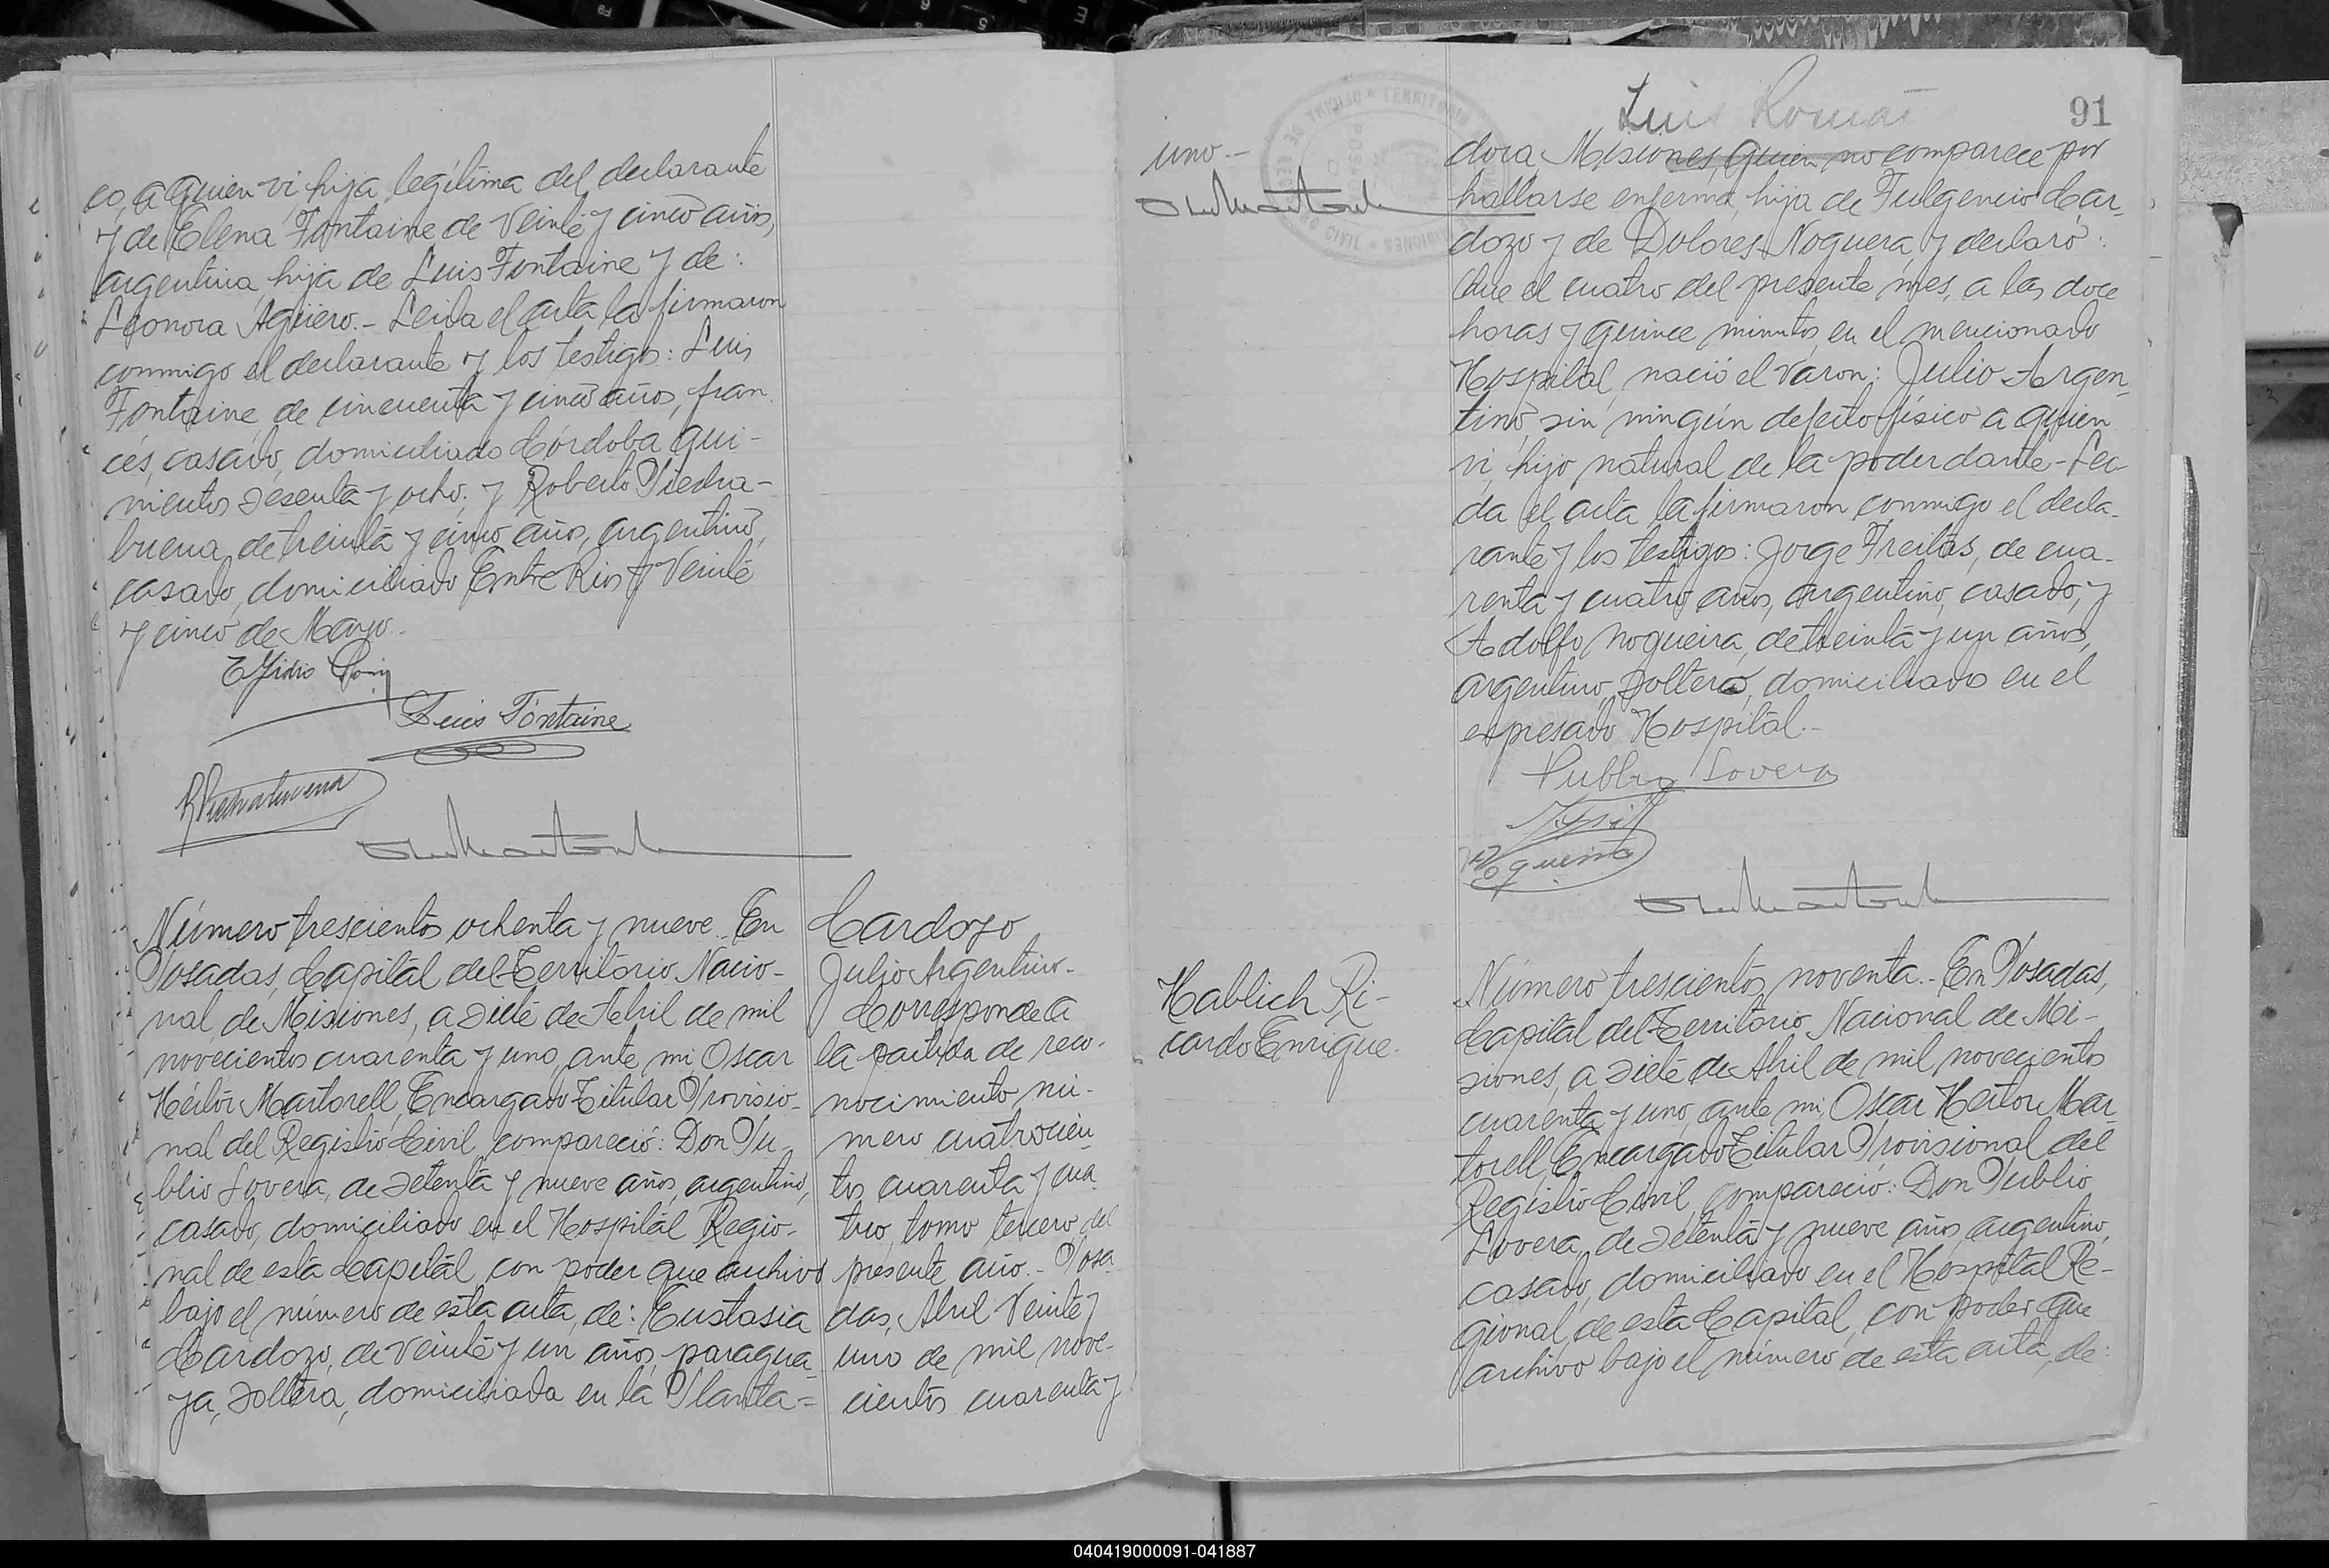 co, a quien vi, hija legítima del declarante
y de Elena Fontaine de veinte y cinco años,
argentina, hija de Luis Fontaine y de:
Leonora Agüero.- Leida el acta la firmaron
conmigo el declarante y los testigos: Luis
Fontaine, de cincuenta y cinco años, fran
cés, casado, domiciliado Córdoba qui-
nientos sesenta y ocho; y Roberto Piedra-
buena, de treinta y cinco años, argentino,
casado, domiciliado Entre Rios y Veinte
y cinco de Mayo.-
Luis Fontaine
RPiedrabuena
Número trescientos ochenta y nueve. En
Posadas, Capital del Territorio Nacio-
nal, de Misiones, a siete de Abril de mil
novecientos cuarenta y uno, ante mi, Oscar
Héctor Martorell, Encargado Titular Provisio-
nal del Registro Civil, compareció: Don Pu-
blio Lovera, de setenta y nueve años, argentino,
casado, domiciliado en el Hospital Regio-
nal de esta Capital, con poder que archivo
bajo el número de esta acta, de: Eustasia
Cardozo, de veinte y un años, paragua-
ya, soltera, domiciliada en la Planta=
Cardozo
Julio Argentino.-
Corresponde a
la partida de reco-
nocimiento nú-
mero cuatrocien
tos cuarenta y cua
tro, tomo tercero, del
presente año.- Posa
das, Abril Veinte y
uno de mil nove-
cientos cuarenta y
uno.-
Luis Roma
91
dora, Misiones, quien no comparece por
hallarse enferma, hija de Fulgencio Car-
dozo y de Dolores Noguera, y declaró:
Que el cuatro del presente mes, a las doce
horas y quince minutos, en el mencionado
Hospital, nació el varon: Julio Argen-
tino, sin ningún defecto físico a quien
vi, hijo natural de la poderdante.- Lei-
da el acta la firmaron conmigo el decla-
rante y los testigos: Jorge Freitas, de cua-
renta y cuatro años, argentino, casado; y
Adolfo Nogueira, de treinta y un años,
argentino, soltero, domiciliado en el
expresado Hospital.-
Publio Lovera
Hablich Ri-
cardo Enrique.-
Número trescientos noventa.- En Posadas,
Capital del Territorio Nacional de Mi-
siones, a siete de Abril de mil novecientos
cuarenta y uno, ante mi, Oscar Héctor Mar
torell, Encargado Titular Provisional del
Registro Civil, compareció: Don Publio
Lovera, de setenta y nueve años, argentino,
casado, domiciliado en el Hospital Re-
gional, de esta Capital, con poder que
archivo bajo el número de esta acta, de:
040419000091-041887